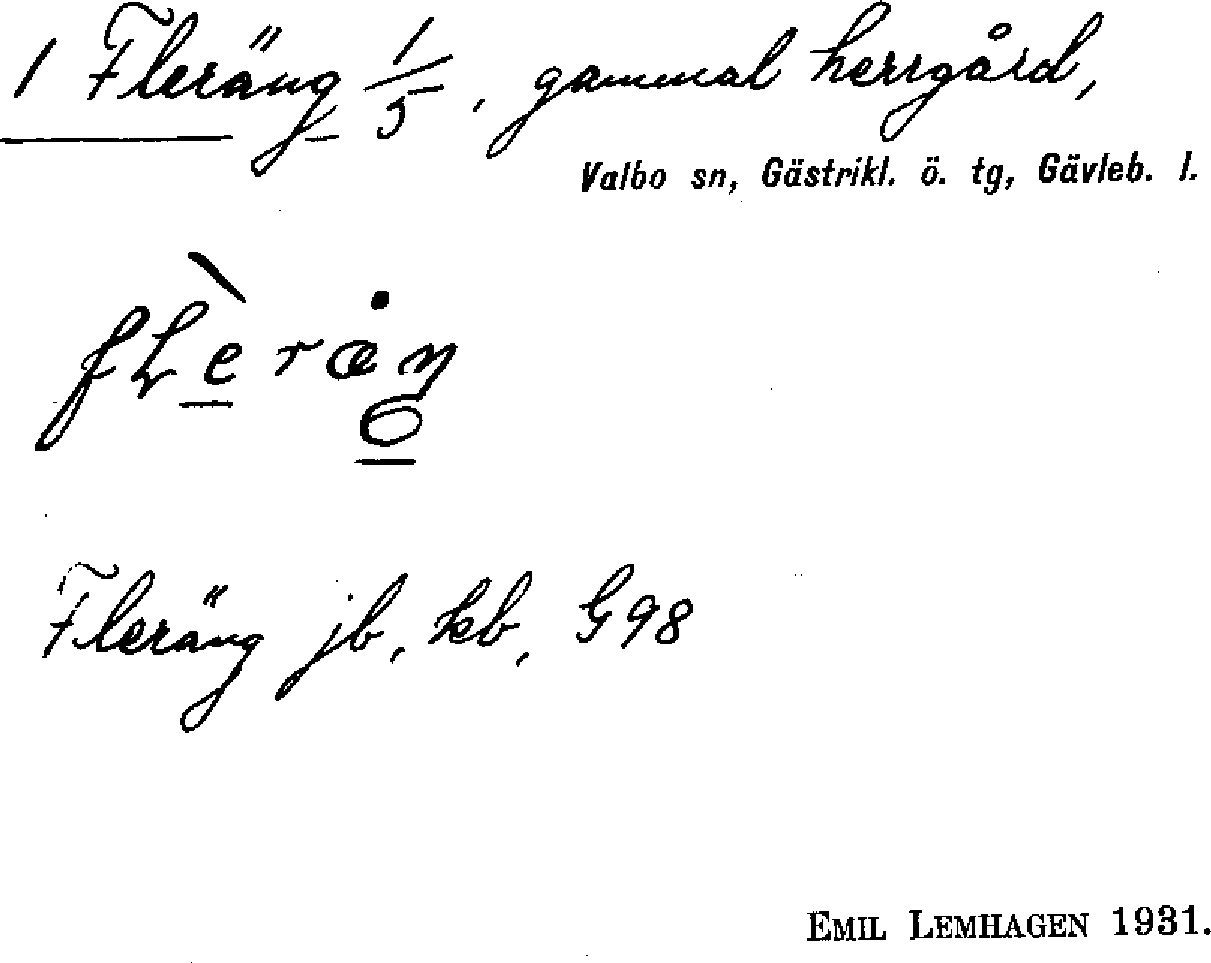 1 Fleräng 1/5, gammal herrgård,
Valbo sn, Gästrikl. ö. tg, Gävleb. l.
Fleräng jb, kb, G98
EMIL LEMHAGEN 1931.